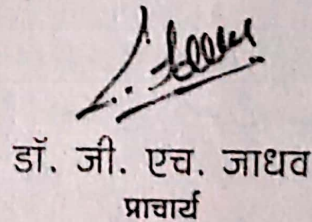 डॉ. जी. एच. जाधव
प्राचार्य